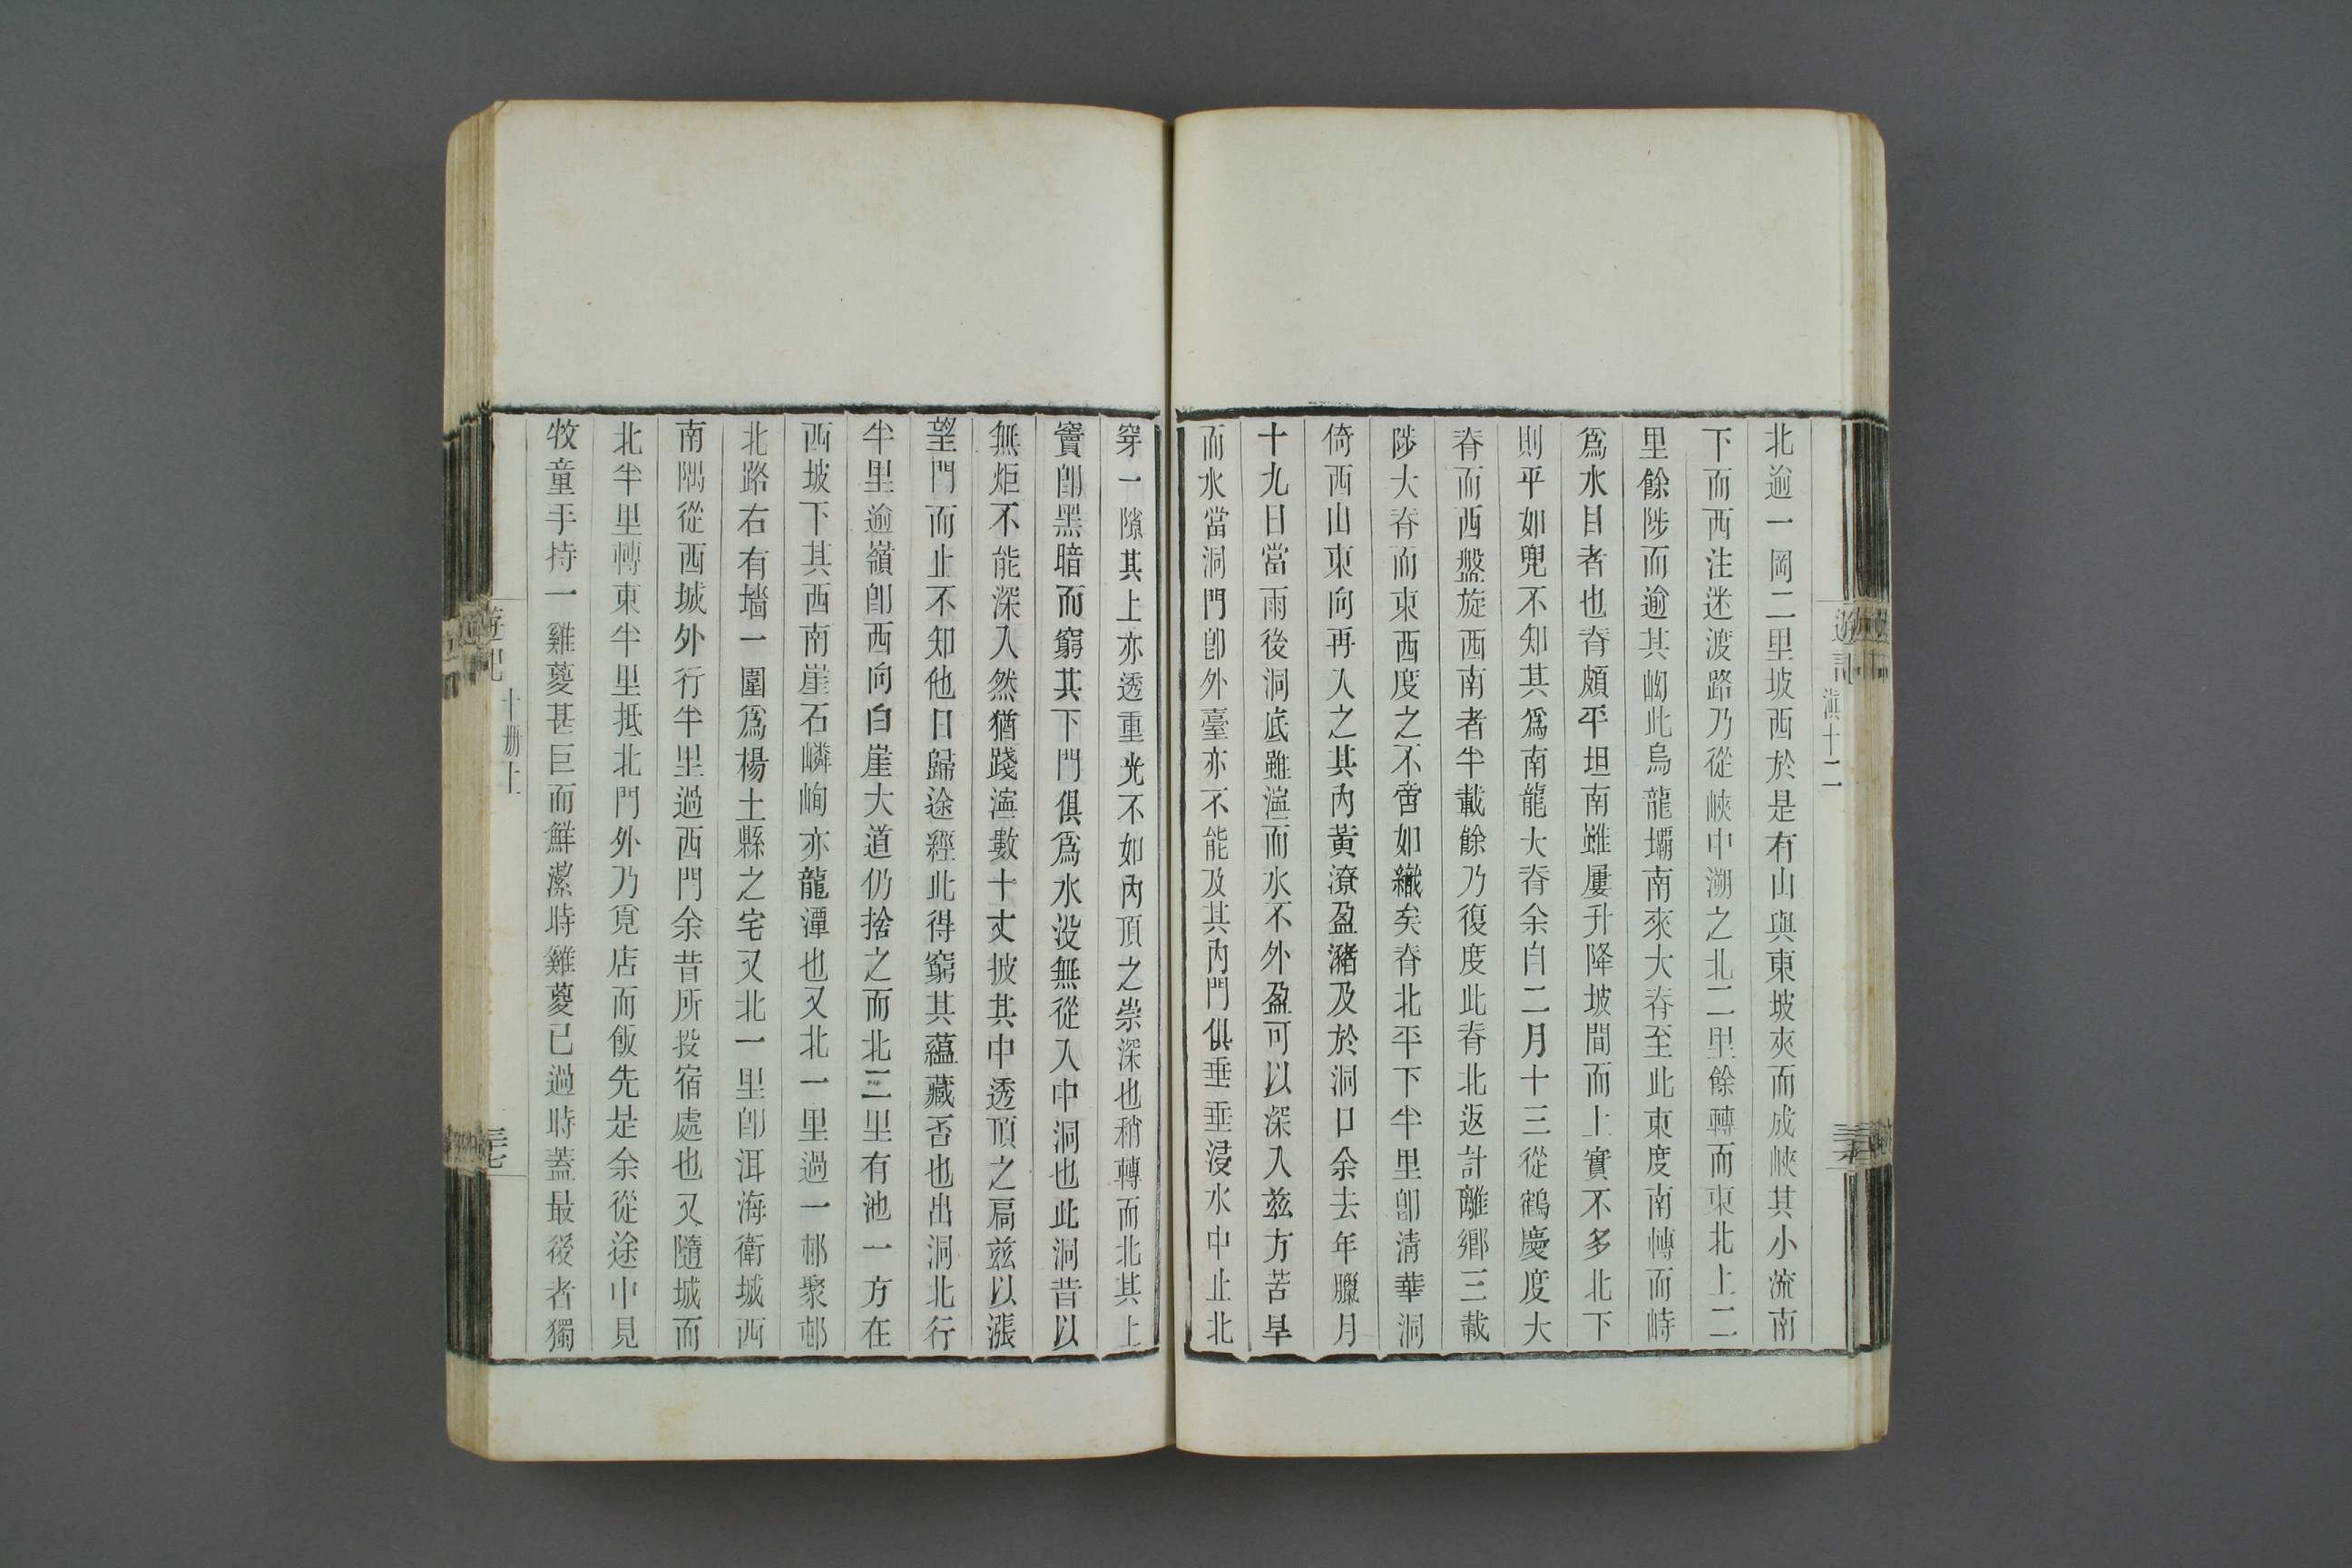 遊記 滇十二
北逾一岡二里坡西於是有山與東坡夾而成峽其小流南
下而西注迷渡路乃從峽中溯之北二里餘轉而東北上二
里餘陟而逾其坳此烏龍壩南來大脊至此東度南轉而峙
爲水目者也脊頗平坦南雖屢升降坡間而上實不多北下
則平如兜不知其爲南龍大脊余自二月十三從鶴慶度大
脊而西盤旋西南者半載餘乃復度此脊北返計離鄉三載
陟大脊而東西度之不啻如織矣脊北平下半里卽清華洞
倚西山東向再入之其內黃潦盈瀦及於洞口余去年臘月
十九日當雨後洞底雖濘而水不外盈可以深入茲方苦旱
而水當洞門卽外臺亦不能及其內門俱垂垂浸水中止北
穿一隙其上亦透重光不如內頂之崇深也稍轉而北其上
竇卽黑暗而窮其下門俱爲水没無從入中洞也此洞昔以
無炬不能深入然猶踐濘數十丈披其中透頂之扃茲以漲
望門而止不知他日歸途經此得窮其蘊藏否也出洞北行
半里逾嶺卽西向白崖大道仍捨之而北三里有池一方在
西坡下其西南崖石嶙峋亦龍潭也又北一里過一邨聚邨
北路右有墻一圍爲楊土縣之宅又北一里卽洱海衛城西
南隅從西城外行半里過西門余昔所投宿處也又隨城而
北半里轉東半里抵北門外乃覓店而飯先是余從途中見
牧童手持一雞葼甚巨而鮮潔時雞葼已過時蓋最後者獨
遊記 十册上 三七